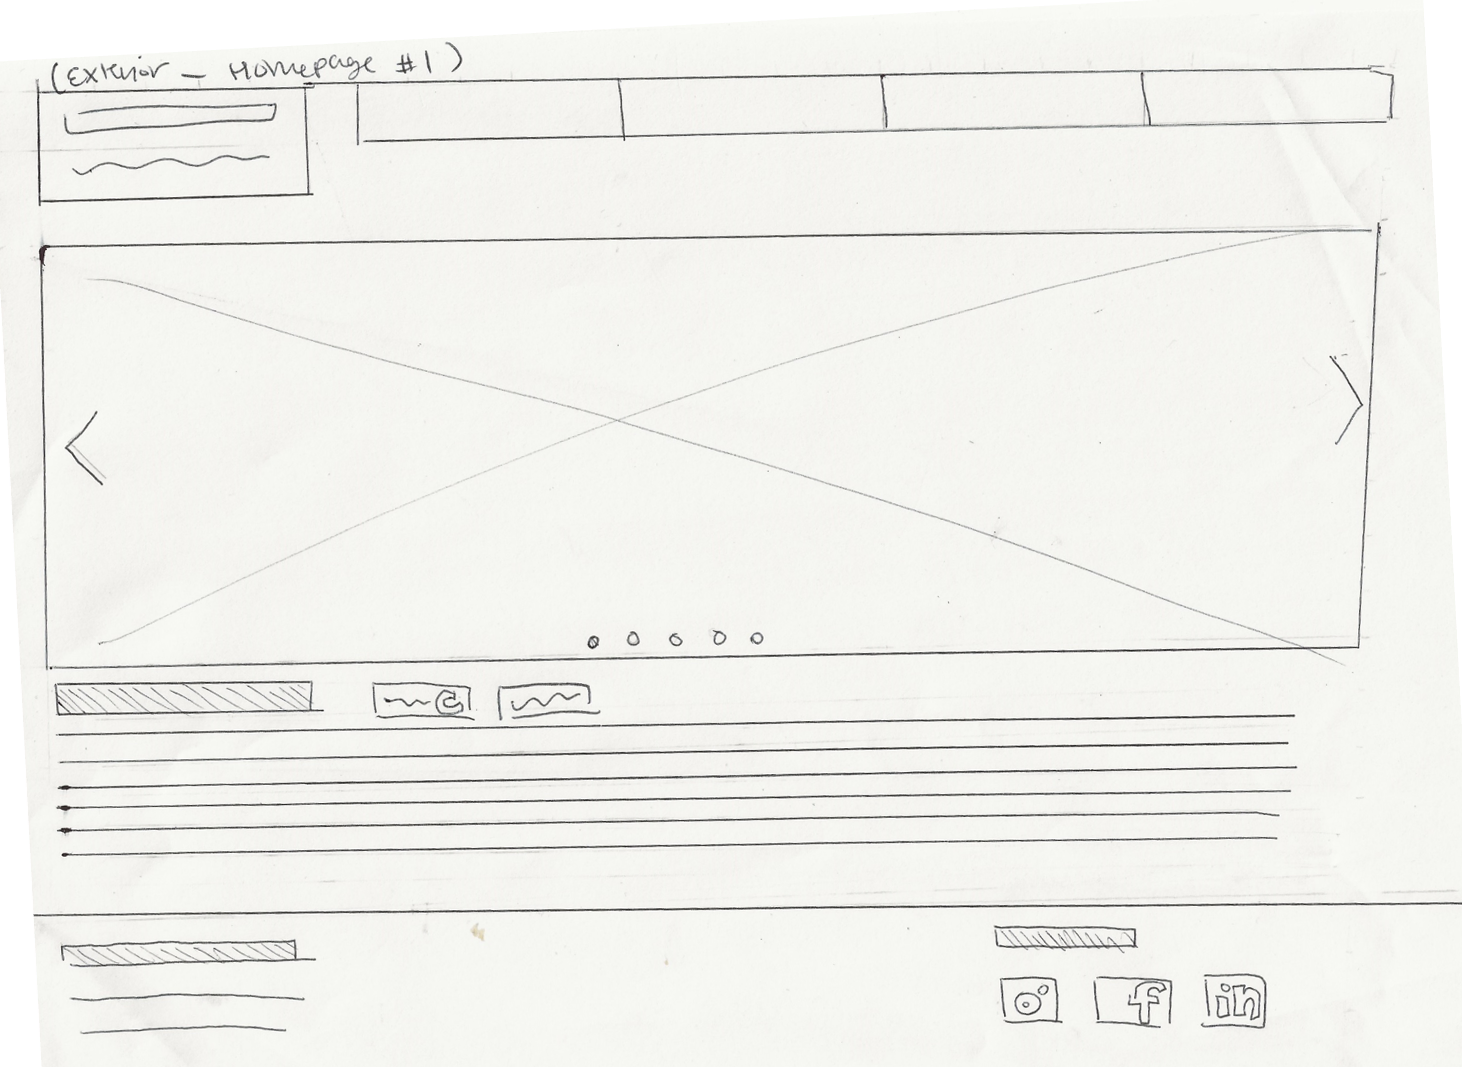 (Exterior - Homepage #1)
f
in